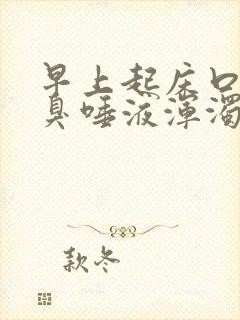 早上起床口
臭唾液浑浊
款冬